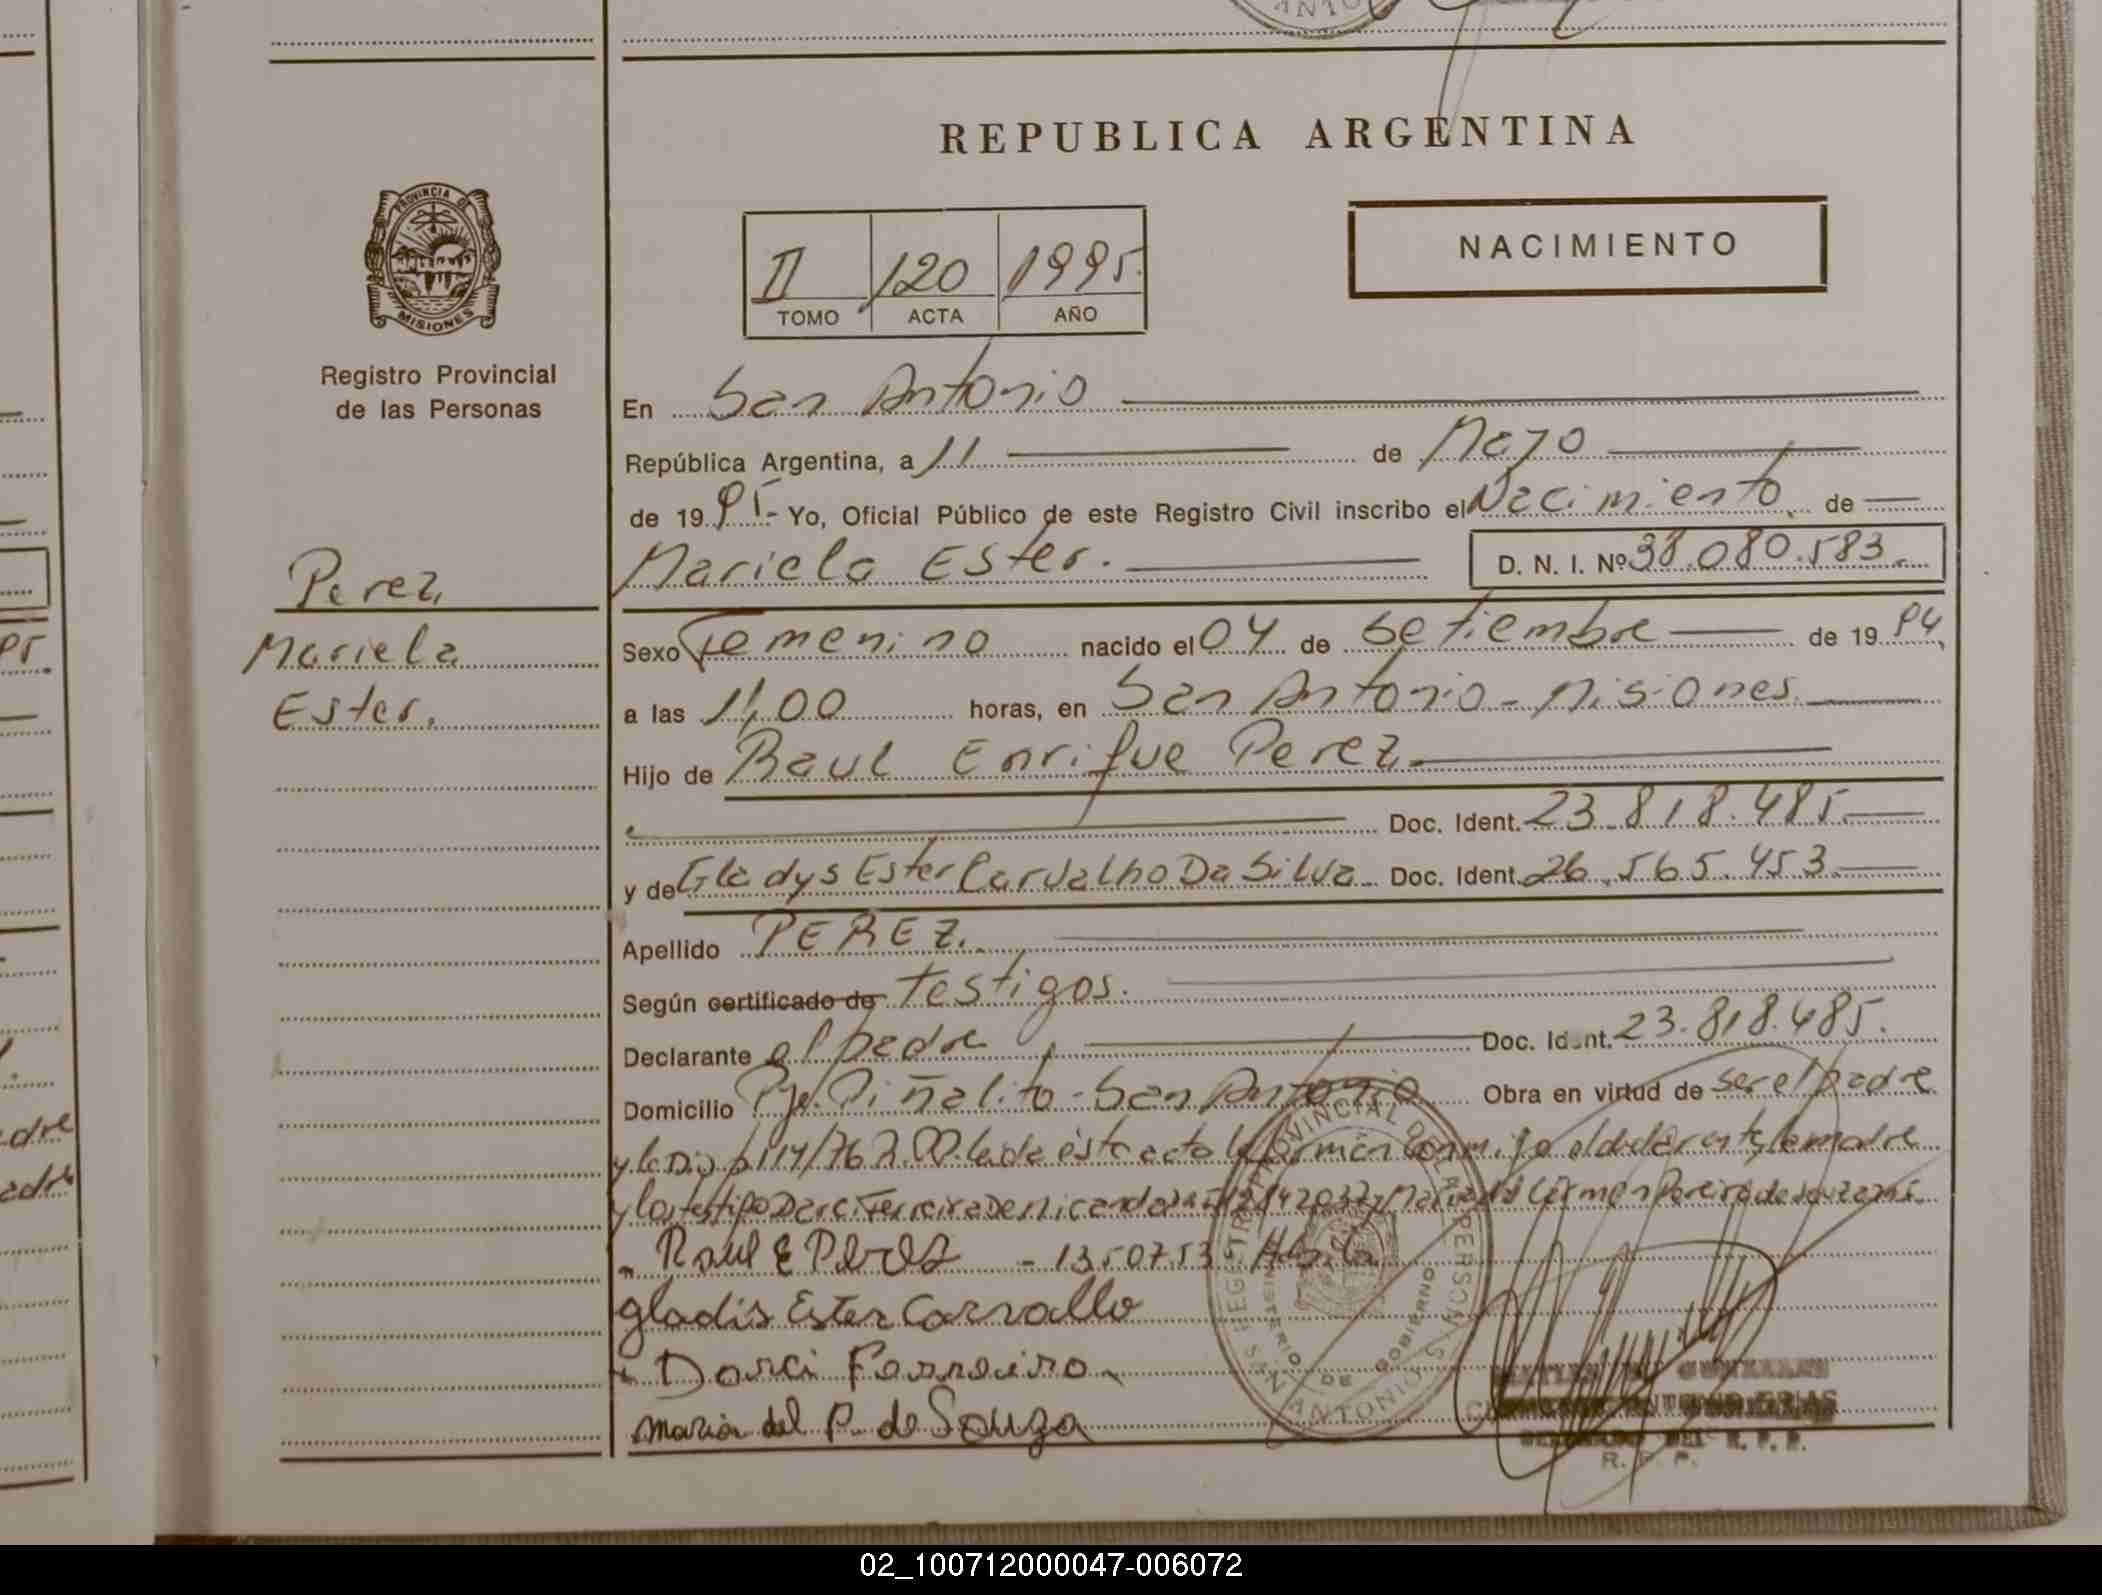 REPUBLICA ARGENTINA
PROVINCIA DE MISIONES
Registro Provincial
de las Personas
II 120 1995.
TOMO ACTA AÑO
NACIMIENTO
Perez
Mariela
Ester.
En San Antonio
República Argentina, a 11 de Mayo
de 1995.- Yo, Oficial Público de este Registro Civil inscribo el Nacimiento de
Mariela Ester. D. N. I. Nº 38.080.583.
Sexo Femenino nacido el 04 de Setiembre de 1994,
a las 11,00 horas, en San Antonio - Misiones.
Hijo de Raul Enrique Perez
Doc. Ident. 23.818.485.
y de Gladys Ester Carvalho Da Silva Doc. Ident. 26.565.453.
Apellido PEREZ.
Según certificado de testigos.
Declarante el padre Doc. Ident. 23.818.485.
Domicilio Pje. Piñalito - San Antonio Obra en virtud de ser el padre
y la Disp. 114/76 Leida ésta acta la firman conmigo el declarante, la madre
y los testigos Darci Ferreira y Maria del Carmen Pereira de Souza
Raul E Perez - 13.507.53
gladis Ester Carvallo
Darci Ferreira
maria del P. de Souza
R. P. P.
02_100712000047-006072